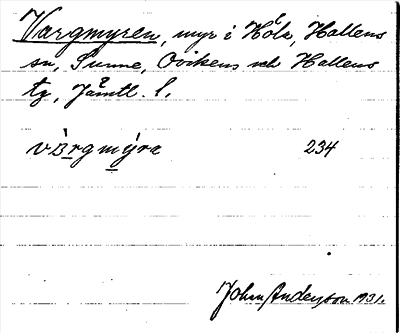 Vargmyren, myr i Höla, Hallens
sn, Sunne, Ovikens och Hallens
tg, Jämtl. l.
vàrgmýra 234
John Andersson 1931.